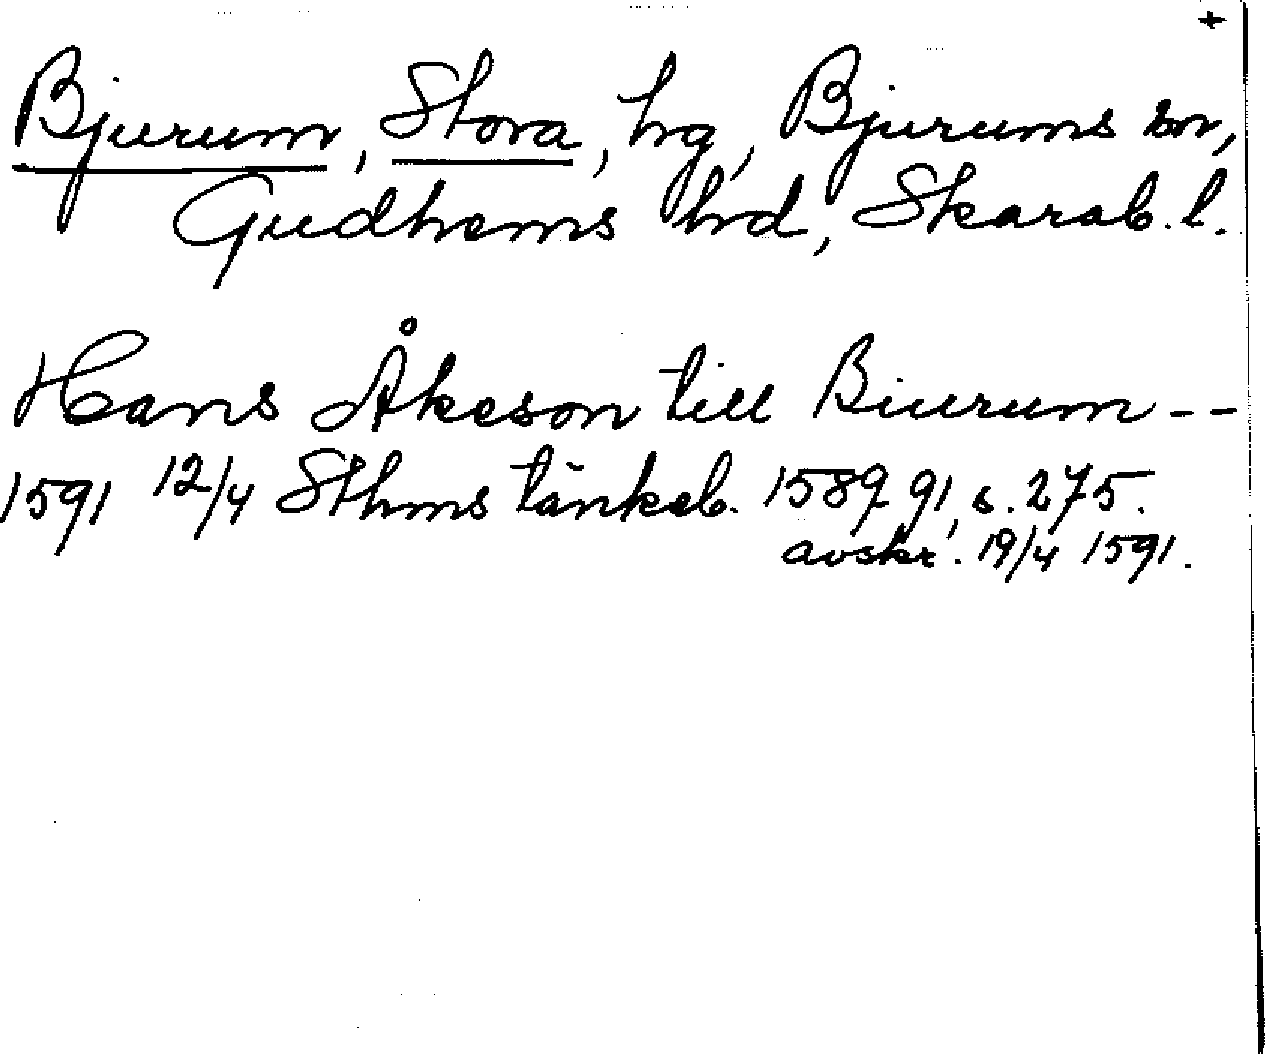 +
Bjurum, Stora, hg, Bjurums sn,
Gudhems hd, Skarab. l.
Hans Åkeson till Biurum - -
1591 12/4 Sthms tänkeb. 1589 91, s. 275.
avskr. 19/4 1591.